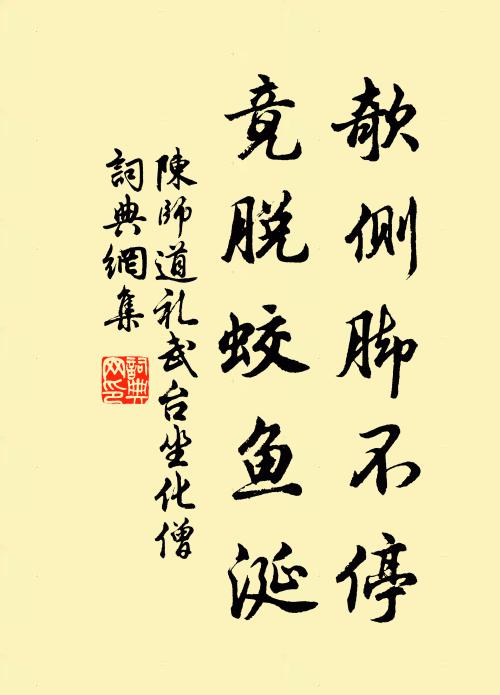 欹侧脚不停
竟脱蛟鱼涎
陳師道礼武台坐化僧
詞典網集
詞典
网印